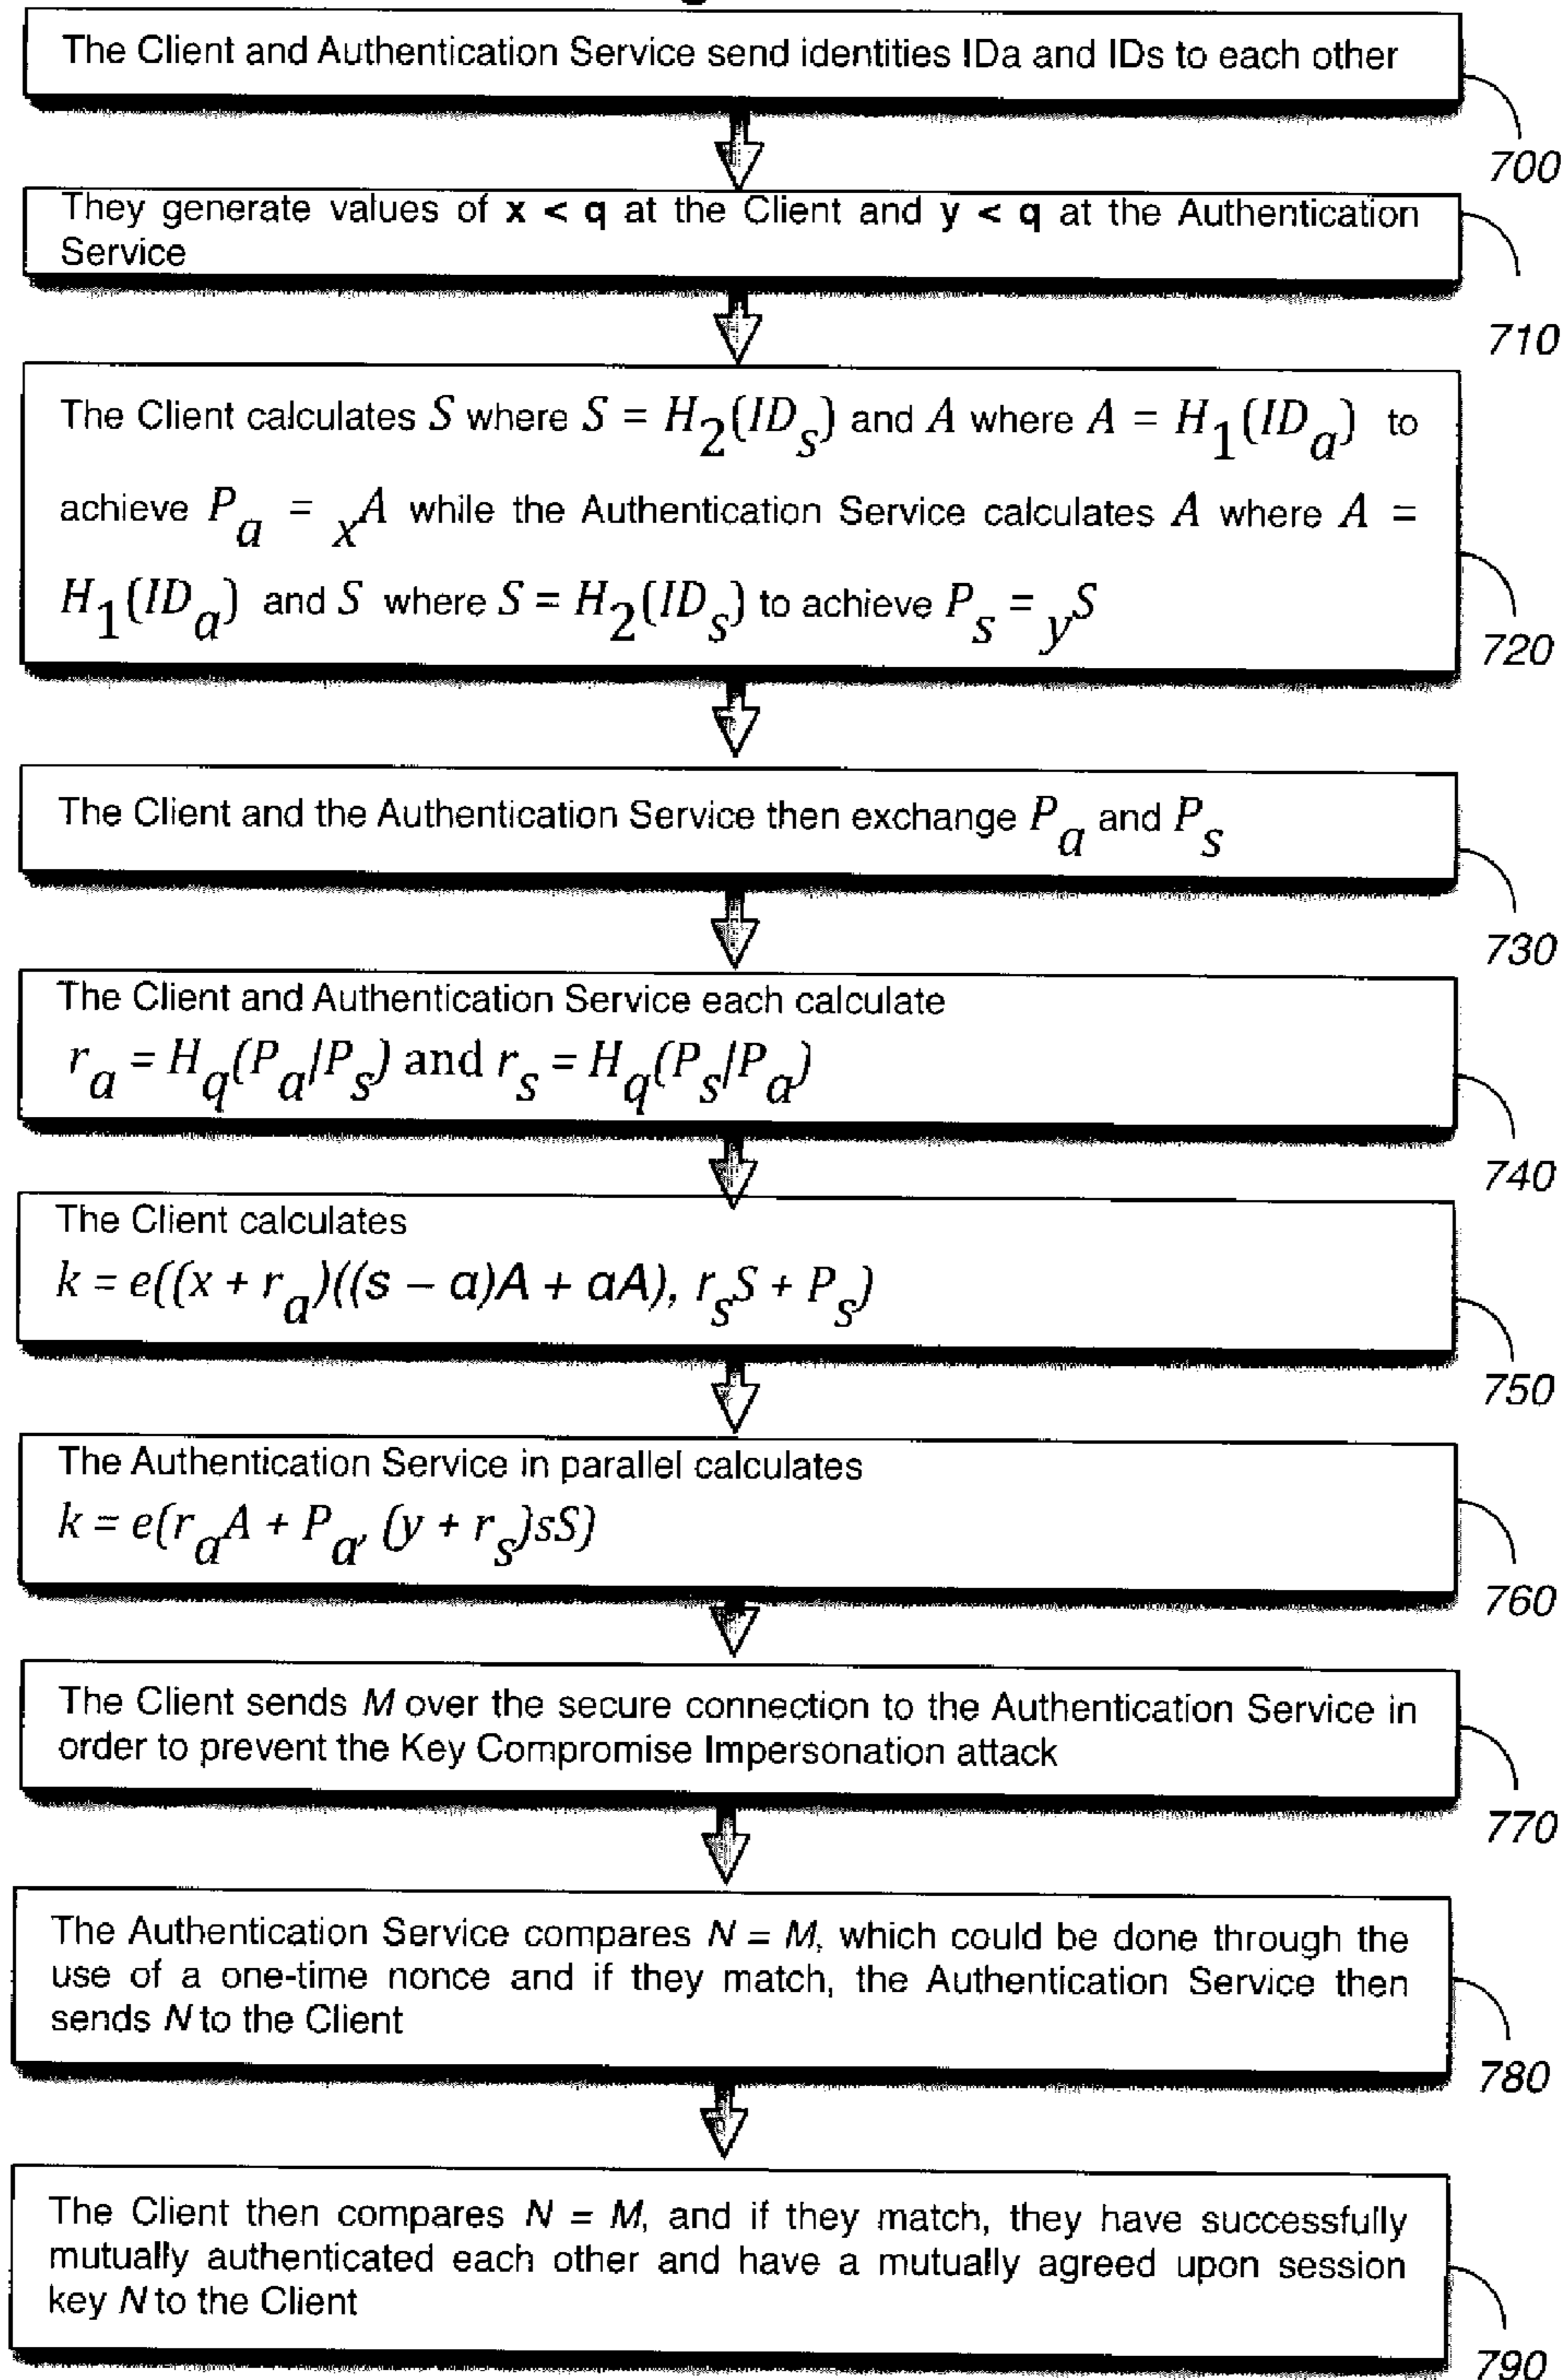 The Client and Authentication Service send identities IDa and IDs to each other
700
They generate values of x < q at the Client and y < q at the Authentication
Service
710
The Client calculates S where S = H₂(ID_s) and A where A = H₁(ID_a) to
achieve P_a = xA while the Authentication Service calculates A where A =
H₁(ID_a) and S where S = H₂(ID_s) to achieve P_s = yS
720
The Client and the Authentication Service then exchange P_a and P_s
730
The Client and Authentication Service each calculate
r_a = H_q(P_a/P_s) and r_s = H_q(P_s/P_a)
740
The Client calculates
k = e((x + r_a)((s – a)A + aA), r_sS + P_s)
750
The Authentication Service in parallel calculates
k = e(r_aA + P_a, (y + r_s)sS)
760
The Client sends M over the secure connection to the Authentication Service in
order to prevent the Key Compromise Impersonation attack
770
The Authentication Service compares N = M, which could be done through the
use of a one-time nonce and if they match, the Authentication Service then
sends N to the Client
780
The Client then compares N = M, and if they match, they have successfully
mutually authenticated each other and have a mutually agreed upon session
key N to the Client
790